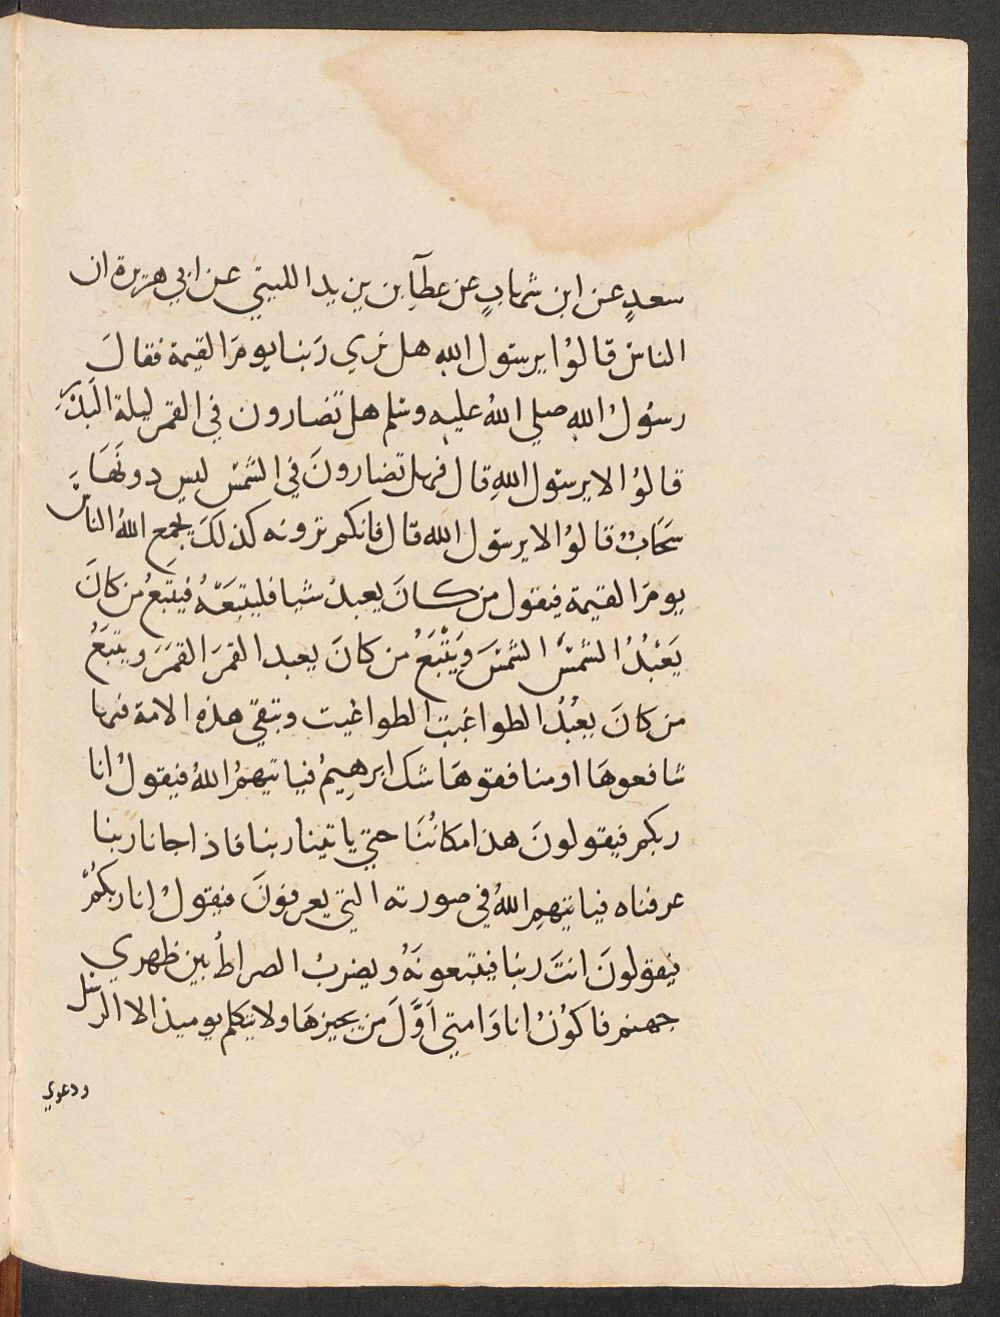 سعدٍ عن ابن شهابٍ عن عطآءِ بن يزيد الليثي عن ابي هريرة ان
الناس قالوُا يرسول اللهِ هل نري رَبنا يومَ القيمة فقالَ
رسُولُ اللهِ صلي اللهُ عليه وسلم هل تضارون في القمر ليلة البَدْرِ
قالوُا لا يرسول اللهِ قال فهل تضارونَ في الشمس ليس دونَهَا
سَحَابٌ قالوُا لا يرسول الله قال فانكم ترونه كذلكَ يجمع اللهُ الناسَ
يومَ القيمة فيقول من كانَ يعبدُ شيا فليتبعَهُ فيتبَعُ من كانَ
يَعْبُدُ الشمسَ الشمسَ وَيَتْبَعُ من كانَ يعبد القمرَ القمَرَ ويتبَعُ
من كانَ يعْبُدُ الطواغيت الطواغيت وتبقي هذه الامة فيها
شافعوهَا او منافقوهَا شك ابرهِيمُ فياتيهمُ اللهُ فيقولُ انا
ربكم فيقولونَ هذا مكانُنَا حتي ياتينا ربنا فاذا جانا ربنا
عرفناه فياتيهم اللهُ في صورته التي يعرفونَ فيقولُ انا ربكُمْ
فيقولونَ انتَ ربنا فيتبعونَهُ ويضربُ الصراطُ بين ظهري
جهنم فاكوُنُ انا وَامتي اَوَّلَ من يجيزهَا ولا يتكلم يوميذ الا الرسل
ودعوي